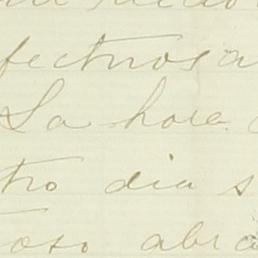 fectuosa
La hora
tro dia s
toso abra